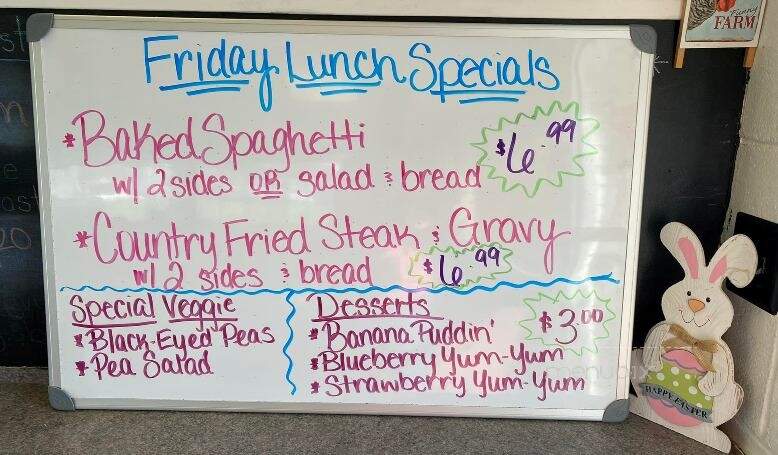 Friday Lunch Specials
*Baked Spaghetti
w/ 2 sides OR salad & bread
$6.99
*Country Fried Steak & Gravy
w/ 2 sides & bread
$6.99
Special Veggie
*Black-Eyed Peas
*Pea Salad
Desserts
$3.00
*Banana Puddin'
*Blueberry Yum-Yum
*Strawberry Yum-Yum
HAPPY EASTER
FARM